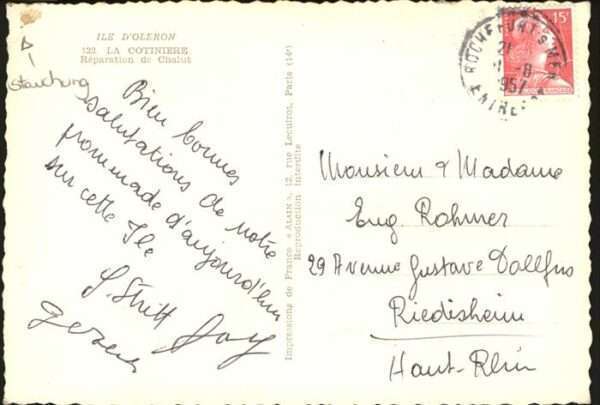 ILE D'OLERON
122. LA COTINIERE
Réparation de Chalut
Stauchung
Bien bonnes
salutations de notre
promenade d'aujourd'hui
sur cette Ile
Impressions de France « ALAIN », 12, rue Lecuirot, Paris (14e)
Reproduction interdite
15F
ROCHEFORT S MER
21
1-8
1957
Monsieur & Madame
Eug. Rohmer
29 Avenue Gustave Dollfus
Riedisheim
Haut-Rhin